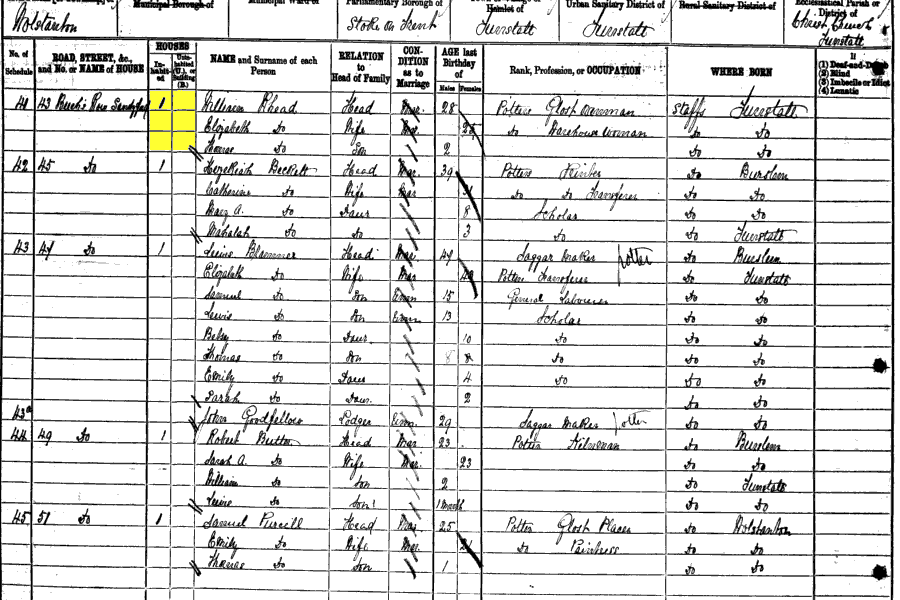 Municipal Borough of Municipal Ward of Parliamentary Borough of Hamlet of Urban Sanitary District of Rural Sanitary District of Ecclesiastical Parish or District of
Wolstanton Stoke on Trent Tunstall Tunstall Christ Church Tunstall
No. of Schedule ROAD, STREET, &c., and No. or NAME of HOUSE HOUSES Inhabited Uninhabited (U.), or Building (B.) NAME and Surname of each Person RELATION to Head of Family CONDITION as to Marriage AGE last Birthday of Males Females Rank, Profession, or OCCUPATION WHERE BORN If (1) Deaf-and-Dumb (2) Blind (3) Imbecile or Idiot (4) Lunatic
41 43 1 William Rhead Head Mar. 28 Potters Glost Staffs Tunstall
Elizabeth do Wife Mar. do Warehouse woman do do
Thomas do Son 2 do do
42 45 do 1 Hezekiah Beckett Head Mar. 39 Potters Printer do Burslem
Catherine do Wife Mar do do Transferer do do
Mary A. do Daur 8 Scholar do do
Mahalah do do 3 do do Tunstall
43 47 do 1 Head Mar. 49 Saggar Maker potter do Burslem
Elizabeth do Wife Mar Potters Transferer do Tunstall
Samuel do Son Unm 15 General Labourer do do
Lewis do Son Unm 13 Scholar do do
Betsy do Daur 10 do do do
Thomas do Son 8 do do do
Emily do Daur 4 do do do
Sarah do Daur. 2 do do
43a John Goodfellow Lodger Unm. 29 Saggar Maker potter do do
44 49 do 1 Robert Button Head Mar 23 Potters Kilnman do Burslem
Sarah A. do Wife Mar. 23 do do
William do Son 2 do Tunstall
do Son 1 Month do do
45 51 do 1 Samuel Purcill Head Mar 25 Potter Glost Placer do Wolstanton
Emily do Wife Mar. do Paintress do do
Thomas do Son 1 do do